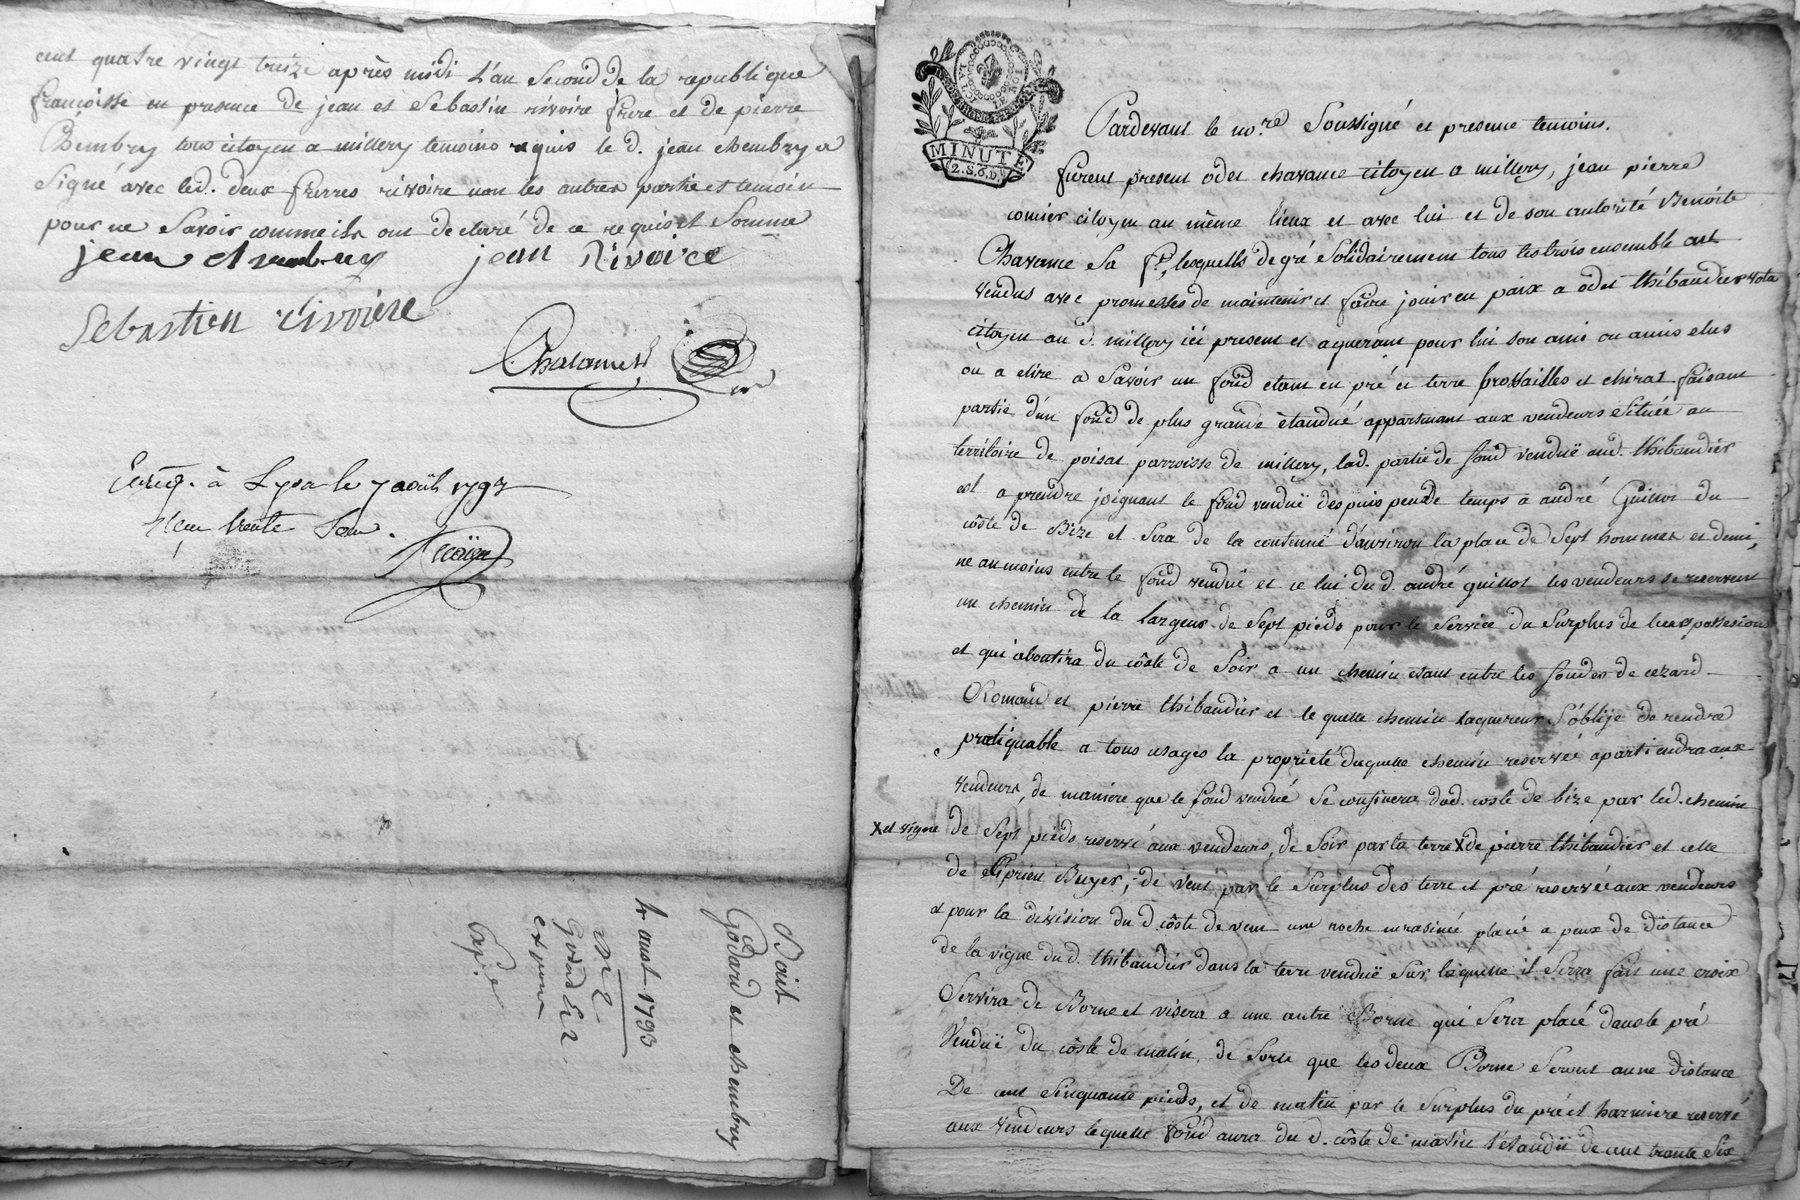 cent quatre vingt treize après midi L'an Second de la republique
francoisse en presence de jean et Sebastin rivoire frere et de pierre
Chembry tous citoyen a millery temoins requis le d. jean chembry a
Signé avec led. deux frerres rivoire non les autres partie et temoin
pour ne Savoir comme ils ont declaré de ce requis et Sommé
jean chembry jean Rivoire
Sebastien rivoire
Enreg. à Lyon le 7 août 1793
Reçu trente Sou.
Doit
Godard et chembry
4 aoust 1793
Expié
ICI LA LOI LE ROI
MINUTE
2. S. 6. D.
Pardevant le no.re Soussigné et presence temoins.
furent present odet chavance citoyen a millery, jean pierre
comier citoyen au même lieux et avec lui et de son autorité Benoite
Chavance Sa f.e, lesquells de gré Solidairement tous les trois ensemble ont
vendus avec promesses de maintenir et faire jouir en paix a odet thibaudier
citoyen au d. millery ici present et aquerant pour lui son ami ou amis elus
ou a elire a Savoir un fond etant en pré et terre brossailles et chirat faisant
partie d'un fond de plus grande êtandué appartenant aux vendeurs Située au
territoire de poisat parroisse de millery, lad. partie de fond venduë aud. thibaudier
est a prendre joignant le fond venduë despuis peu de temps a andré Guillot du
côste de Bize et Sera de la contenuë d'environ la place de Sept hommes et demi,
ne anmoins entre le fond venduë et ce lui du d. andré guillot les vendeurs se reservent
un chemin de la largeur de Sept pieds pour le Service du Surplus de leurs possesions
et qui aboutira du côste de Soir a un chemin etant entre les fondes de cezard
Romand et pierre thibaudier et le quelle chemin laquereur S'oblije de rendre
pratiquable a tous usages la proprieté duquelle chemin reservée apartiendra aux
vendeurs, de maniere que le fond vendué Se confinera dud. coste de bize par led. chemin
de Sept pieds reservé aux vendeurs, de Soir par la terre X de pierre thibaudier et celle
X et vigne
de Ciprien Buyer, de vent par le Surplus des terre et pré reservée aux vendeurs
et pour la division du d. côste de vent une roche enrasinée placé a peux de distance
de la vigne du d. thibaudier dans la terre venduë Sur laquelle il Serra fait une croix
Servira de Borne et visera a une autre Borne qui Sera placé dans le pré
Venduë du côste de matin, de Sorte que les deux Borne Seront a une distance
De cent Sinquante pieds, et de matin par le Surplus du pré et hermiere reservé
aux vendeurs le quelle fond aura du d. côste de matin l'etanduë de cent trante Six